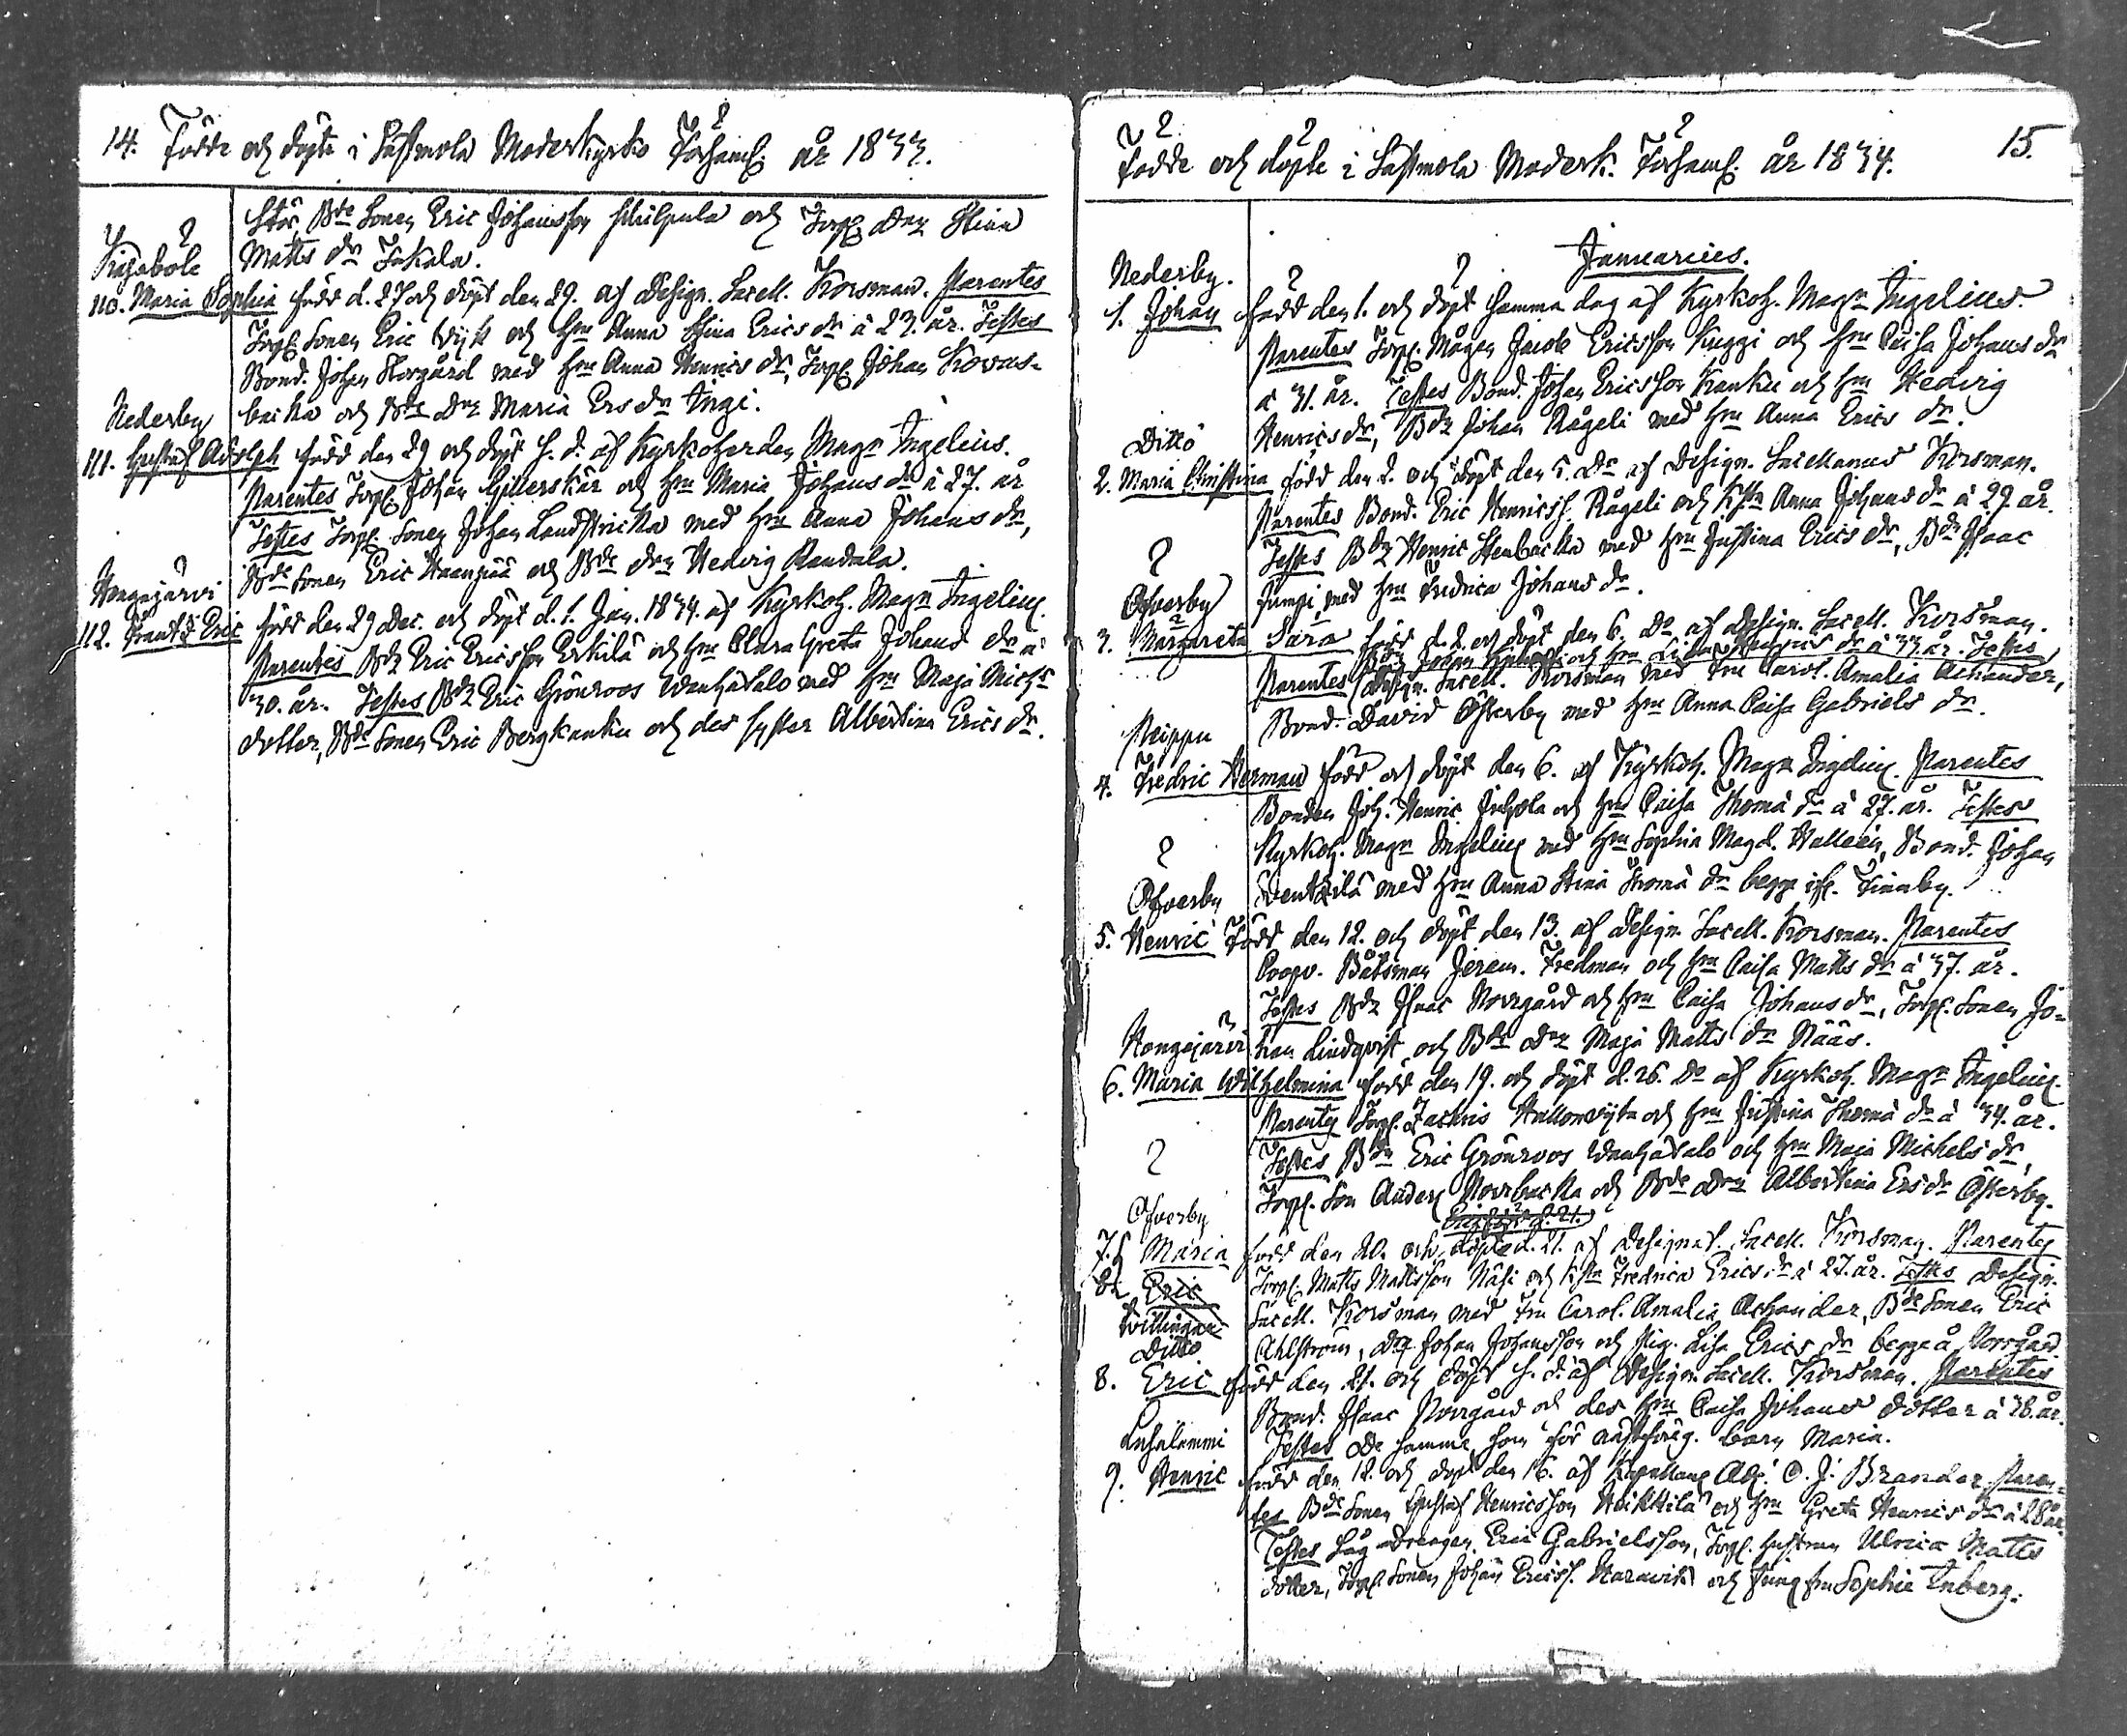 14. Födde och döpte i Lastmola Moderkyrko Församl. år 1833.
Stor, Bde Sonen Eric Johansson och Torp. Dr Stina
Matts dr Jakala.
110. Maria Sophia född d. 27 och döpt den 29. af Design. Sacell. Korsman. Parentes
Torp. Sonen Eric Wyk och Hu Anna Stina Erics dr à 23. år. Testes
Bond. Johan Storgård med Hu Anna Henrics dr, Torp. Johan Kovas-
backa och Bde Dr Maria Ers dr Ingi.
Nederby
111. Gustaf Adolph född den 29 och döpt s. d. af Kyrkoherden Magr Ingelius.
Parentes Torp. Johan Gillerskär och Hu Maria Johans dr à 27. år
Testes Torp. Sonen Johan med Hu Anna Johans dr,
Bde Sonen Eric och Bde Dr Hedvig Randala.
Hongojärvi
112. Frants Eric född den 29 Dec. och döpt d. 1. Jan. 1834. af Kyrkoh. Magr Ingelius.
Parentes Bdn Eric Ericsson Erkilä och Hu Clara Greta Johans dr à
30. år. Testes Bdn Eric Grönroos Wanhatalo med Hu Maja Michs
dotter, Bde Sonen Eric Bergkanku och des syster Albertina Erics dr.
Födde och döpte i Lastmola Moderk. Församl. år 1834. 15.
Januarius.
Nederby.
1. Johan född den 1. och döpt samma dag af Kyrkoh. Magr Ingelius.
Parentes Torp. Mågen Jacob Ericsson Kuggi och Hu Caisa Johans dr
à 31. år. Testes Bond. Johan Ericsson Kanku och Hu Hedvig
Henrics dr, Bdn Johan Rågeli med Hu Anna Erics dr.
Ditto
2. Maria Christina född den 2. och döpt den 5. do af Design. Sacellanus Korsman.
Parentes Bond. Eric Henricss. Rågeli och Hustr Anna Johans dr à 29. år.
Testes Bdn Henric Stenbacka med Hu Justina Erics dr, Bdn Isaac
Jumpi med Hu Fredrica Johans dr.
Öfverby
3. Margareta Sara född d. 2. och döpt den 6. do af Design. Sacell. Korsman.
och Hu Lisa dr à 33 år. Testes
Parentes Design. Sacell. Korsman med Fru Carol. Amalia Achander,
Bond. David Österby med Hu Anna Caisa Gabriels dr.
Peippu
4. Fredric Herman född och döpt den 6. af Kyrkoh. Magr Ingelius. Parentes
Bonden Joh. Henric och Hu Caisa Thomä dr à 27. år. Testes
Kyrkoh. Magr Ingelius med Hu Sophia Magd. Halleen, Bond. Johan
med Hu Anna Stina Thomä dr begge ifr. Finnby.
Öfverby
5. Henric född den 12. och döpt den 13. af Design. Sacell. Korsman. Parentes
Båtsman Jerem. Fredman och Hu Caisa Matts dr à 37. år.
Testes Bdn Isaac Norrgård och Hu Caisa Johans dr, Torp. Sonen Jo-
Hongojärvi han Lindqvist och Bde Dr Maja Matts dr Nääs.
6. Maria Wilhelmina född den 19. och döpt d. 26. do af Kyrkoh. Magr Ingelius.
Parentes Torp. Zachris och Hu Justina Thomä dr à 34. år.
Testes Bdn Eric Grönroos Wanhatalo och Hu Maja Michels dr,
Torp. Son Anders Norrbacka och Bde Dr Albertina Ers dr Österby.
Öfverby
7. Maria född den 20. och döpte d. 21. af Design. Sacell. Korsman. Parentes
8. Eric Torp. Matts Mattsson Näsi och Hustr Fredrica Erics dr à 27. år. Testes Design.
Tvillingar Sacell. Korsman med Fru Carol. Amalia Achander, Bde Sonen Eric
Ditto Ahlström, Dr. Johan Johansson och Pig. Lisa Erics dr begge å Norrgård.
8. Eric född den 21. och döpt s. d. af Design. Sacell. Korsman. Parentes
Bond. Isaac Norrgård och des Hu Caisa Johans dotter à 38. år.
Testes De samme som för nästföreg. barn Maria.
9. Henric född den 12. och döpt den 16. af Kapellans Adj. C. J. Brander. Paren-
tes Bde Sonen Gustaf Henricsson Heikkilä och Hu Greta Henrics dr à 28 år.
Testes Drengen Eric Gabrielsson, Torp. hustrun Ulrica Matts
dotter, Torp. Sonen Johan Ericss. Haravik och Jungfru Sophie Enberg.